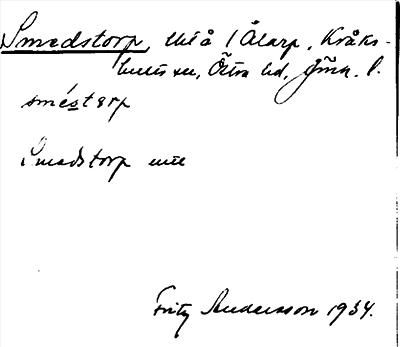 Smedstorp, Utå / Ålarp, Kråks-
hults sn, Östra hd, Jönk. l.
sméstɐrp
Smedstorp
Fritz Andersson 1934.